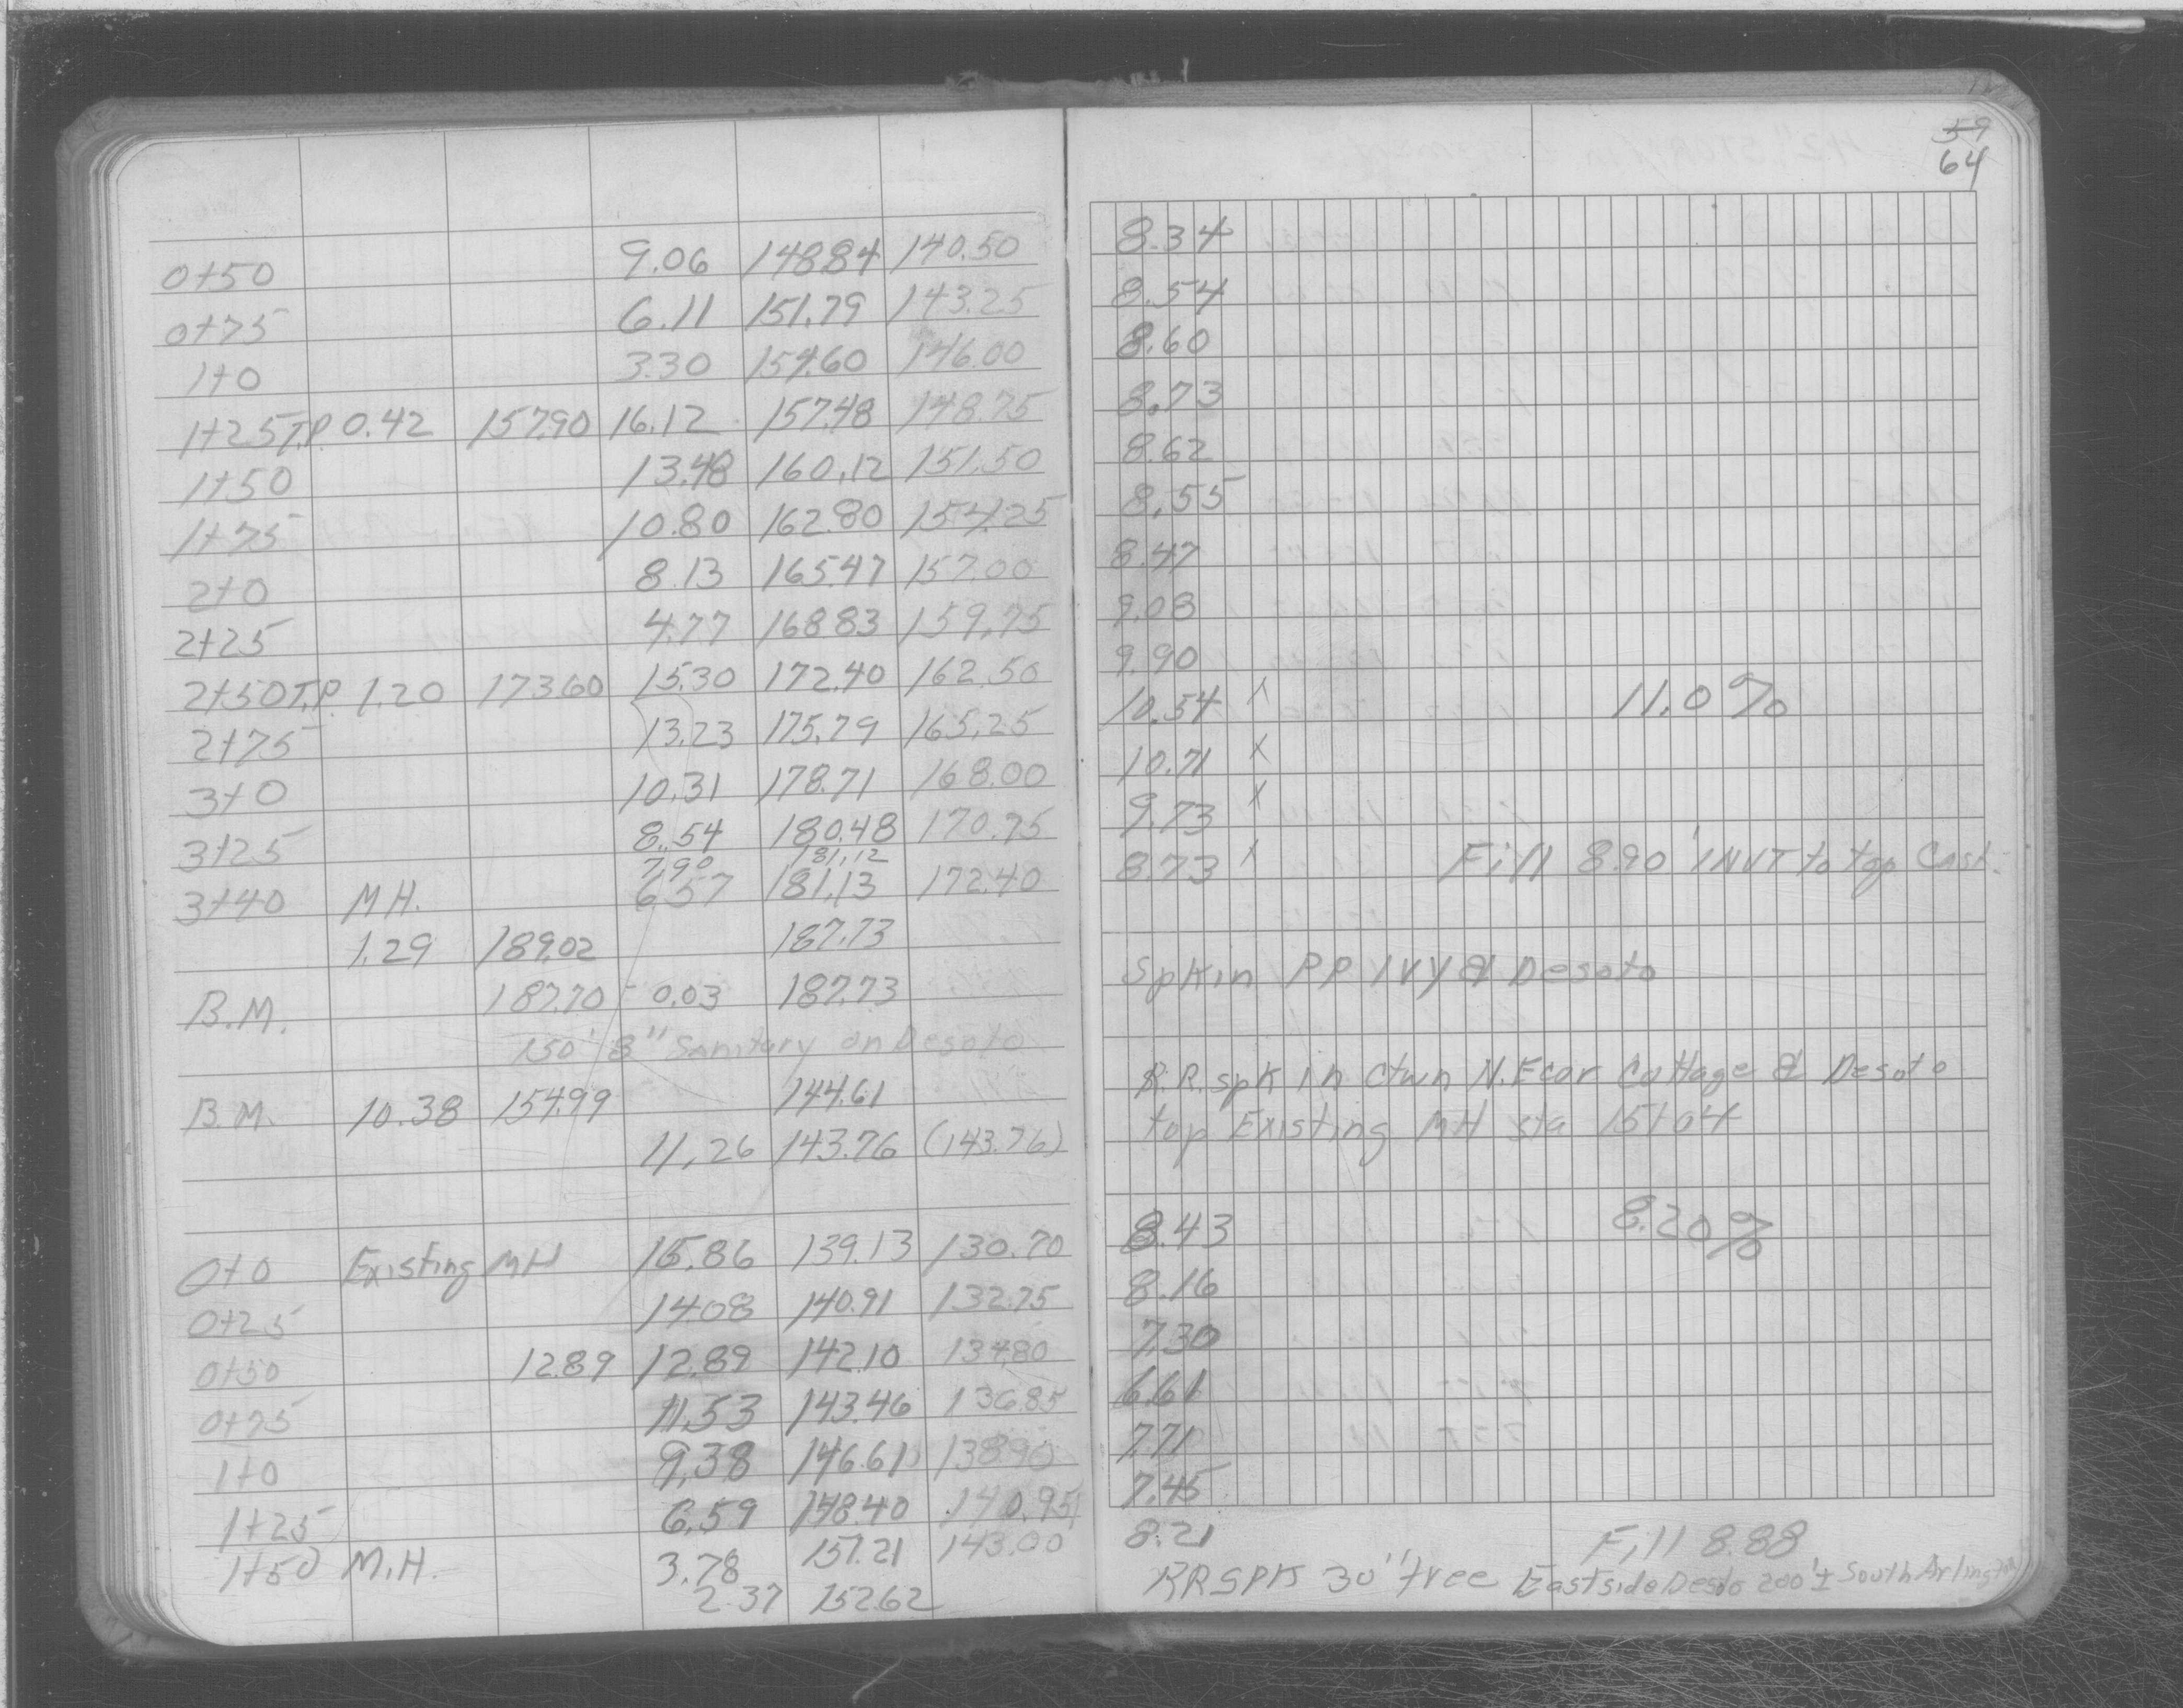 0+50 9.06 148.84 140.50
0+75 6.11 151.79 143.25
1+0 3.30 154.60 146.00
1+25 T.P. 0.42 157.90 16.12 157.48 148.75
1+50 13.48 160.12 151.50
1+75 10.80 162.80 154.25
2+0 8.13 165.47 157.00
2+25 4.77 168.83 159.75
2+50 T.P. 1.20 173.60 15.30 172.40 162.50
2+75 13.23 175.79 165.25
3+0 10.31 178.71 168.00
3+25 8.54 180.48 170.75
7.90 181.12
3+40 M.H. 6.57 181.13 172.40
1.29 189.02 187.73
B.M. 187.70 - 0.03 187.73
150' 8" Sanitary on Desoto
B.M. 10.38 154.99 144.61
11.26 143.76 (143.76)
0+0 Existing MH 15.86 139.13 130.70
0+25 14.08 140.91 132.75
0+50 12.89 12.89 142.10 134.80
0+75 11.53 143.46 136.85
1+0 9.38 146.61 138.90
1+25 6.59 148.40 140.95
1+50 M.H. 3.78 151.21 143.00
2.37 152.62
59
64
8.34
8.54
8.60
8.73
8.62
8.55
8.47
9.08
9.90
10.54 x 11.0%
10.71 x
9.73 x
8.73 x Fill 8.90' INVT to top Cast.
Spk in PP IVY & Desoto
R.R. spk in ctwn N.E cor Cottage & Desoto
top Existing MH sta 15+04
8.43 8.20%
8.16
7.30
6.61
7.71
7.45
8.21 Fill 8.88
RR SPK 30" tree East side Desto 200'± South Arlington